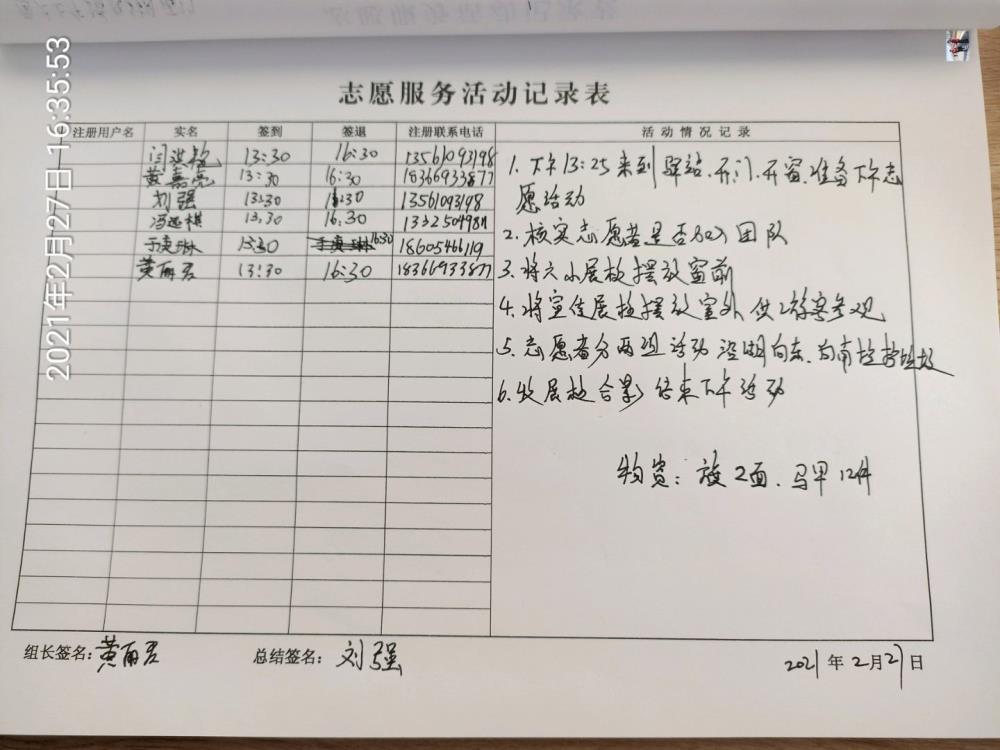 2021年2月27日 16:35:53
志愿服务活动记录表
注册用户名 实名 签到 签退 注册联系电话 活动情况记录
13:30 16:30 13561093198
黄嘉亮 13:30 16:30 18366933877
刘强 13:30 16:30 13561093198
13:30 16:30
13:30 16:30 18605466119
黄丽君 13:30 16:30 18366933877
1. 下午13:25来到驿站.开门.开窗.准备下午志
愿活动
2. 核实志愿者是否加入团队
3. 将六小展板摆放窗前
4. 将宣传展板摆放室外 供游客参观
5. 志愿者分两组活动 沿湖向东.向南捡拾垃圾
6. 收展板合影 结束下午活动
物资: 旗2面. 马甲12件
组长签名: 黄丽君 总结签名: 刘强 2021年2月27日